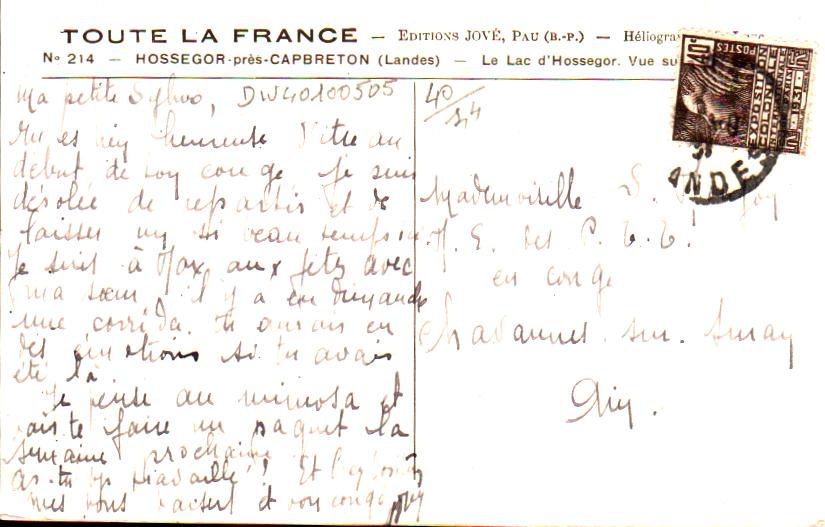 TOUTE LA FRANCE — EDITIONS JOVÉ, PAU (B.-P.) — Héliogra
N° 214 — HOSSEGOR-près-CAPBRETON (Landes) — Le Lac d'Hossegor. Vue su
40c
POSTES
EXPOSITION
COLONIALE
1931
ANDES
DW40100505
40
Ma petite
es heureuse d'être au
début de ton congé je suis
désolée de repartir et de
laisser un si beau temps
Je suis à Dax aux fêtes avec
ma sœur il y a eu dimanche
une corrida. tu aurais eu
des émotions si tu avais
été là
Je pense au mimosa et
vais te faire un paquet la
semaine prochaine
as-tu travaillé! Et
mes bons baisers et bon congé
Mademoiselle S.
des P.T.T.
en congé
Chavannes sur Suran
Ain.